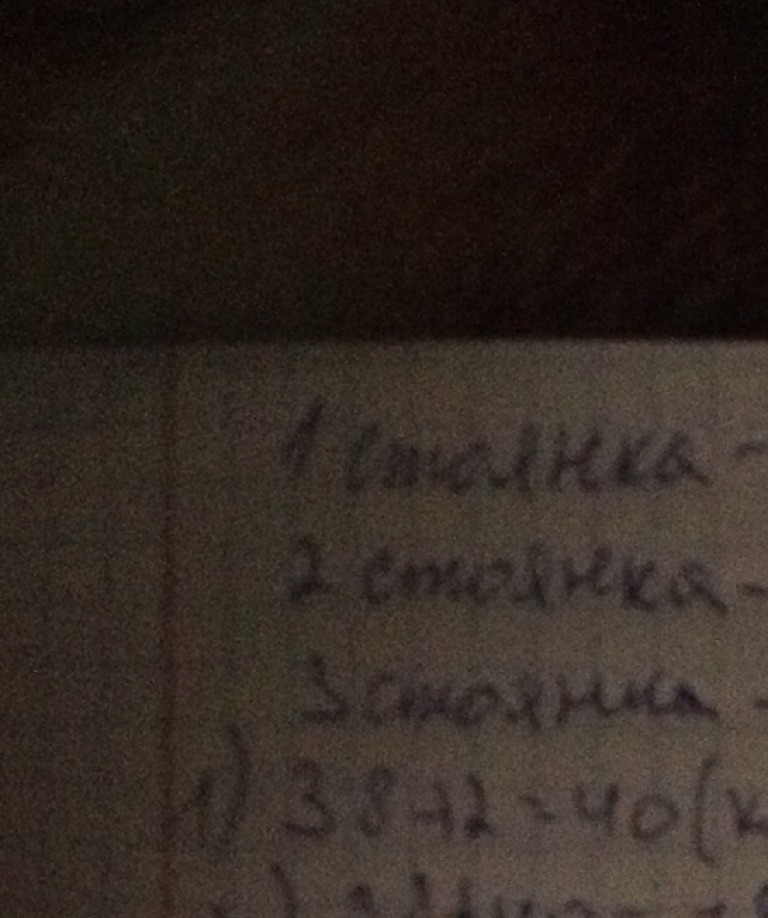 1 стоянка -
2 стоянка -
3 стоянка -
1) 38+2=40(к